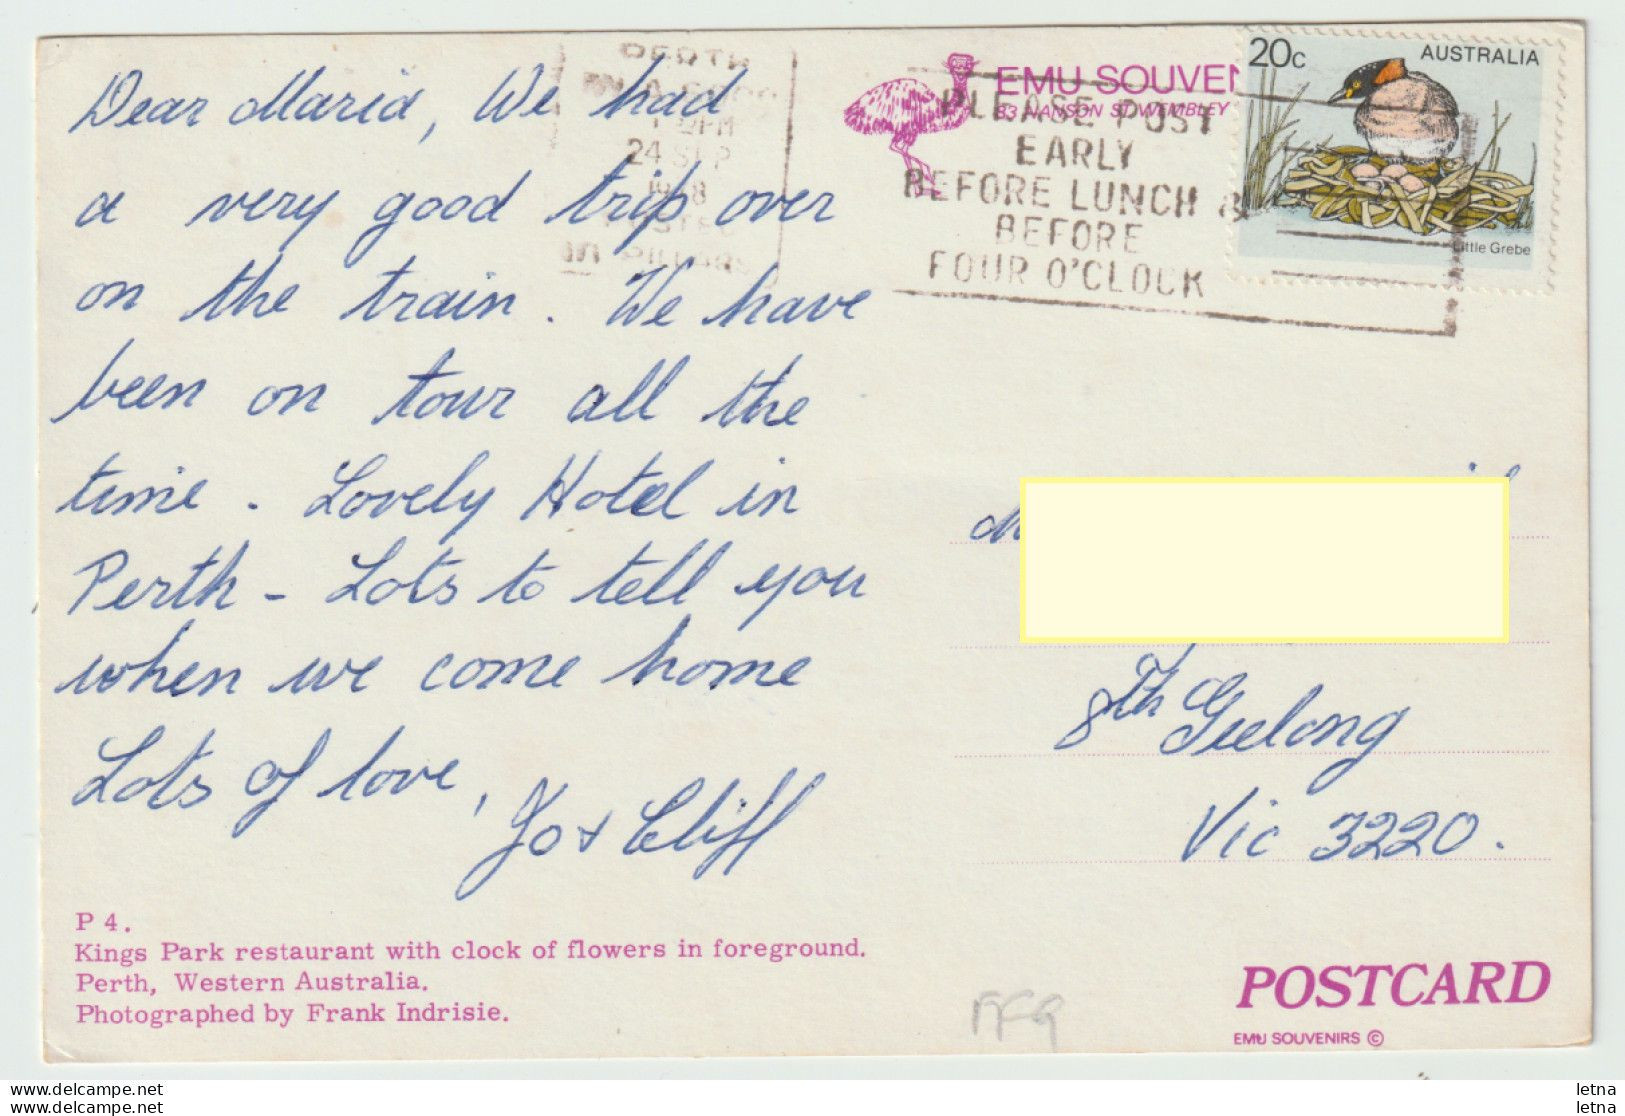 Dear Maria, We had
a very good trip over
on the train. We have
been on tour all the
time - Lovely Hotel in
Perth - Lots to tell you
when we come home
Lots of love,
Jo & Cliff
P 4.
Kings Park restaurant with clock of flowers in foreground.
Perth, Western Australia.
Photographed by Frank Indrisie.
PERTH
24 SEP
EMU SOUVEN
83 NANSON ST WEMBLEY
PLEASE POST
EARLY
BEFORE LUNCH &
BEFORE
FOUR O'CLOCK
20c AUSTRALIA
Little Grebe
8th Geelong
Vic 3220.
POSTCARD
EMU SOUVENIRS ©
delcampe.net
letna
delcampe.net
letna